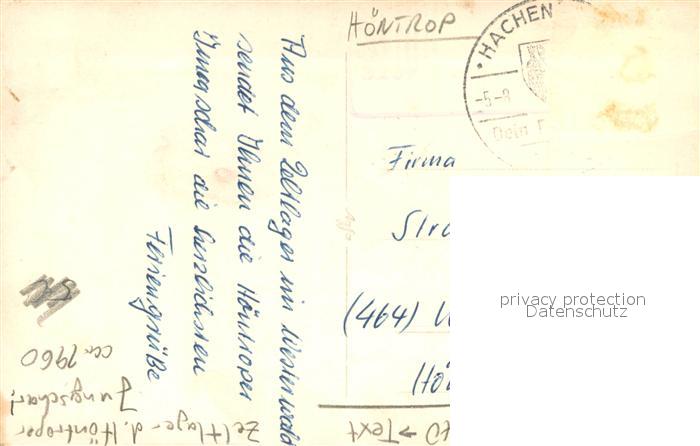 HÖNTROP
HACHEN
-5.-8
Dein
Aus dem Zeltlager im Westerwald
sendet Ihnen die Höntroper
Jungschar die herzlichsten
Feriengrüße
Firma
Str
(464) W
Hö
privacy protection
Datenschutz
ca. 1960
Zeltlager d. Höntroper
Jungschar!
→ Text